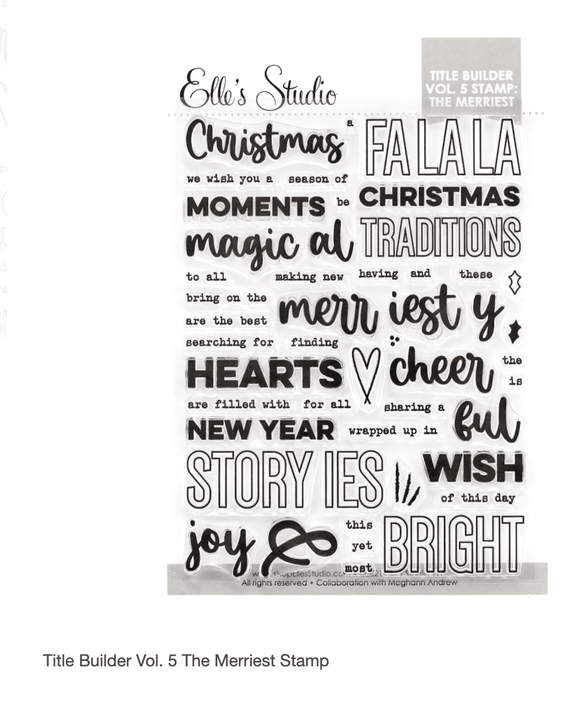 Elle's Studio
TITLE BUILDER
VOL. 5 STAMP:
THE MERRIEST
Christmas a FA LA LA
we wish you a season of
MOMENTS be CHRISTMAS
magic al TRADITIONS
to all making new having and these
bring on the
are the best merr iest y
searching for finding
HEARTS cheer the
is
are filled with for all sharing a
NEW YEAR wrapped up in ful
STORY IES WISH
of this day
joy this
yet
most BRIGHT
All rights reserved • Collaboration with Meghann Andrew
Title Builder Vol. 5 The Merriest Stamp